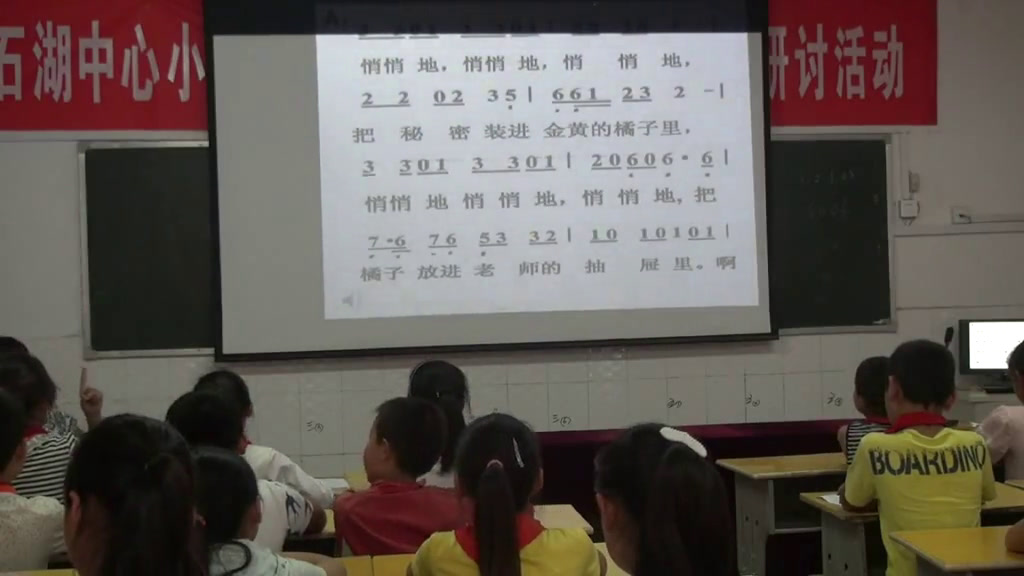 石湖中心小
研讨活动
悄悄 地，悄悄 地，悄 悄 地，
2 2 02 35 | 661 23 2 -|
把 秘 密 装进 金黄的橘子里，
3 301 3 301 | 20606· 6 |
悄悄 地 悄 悄 地，悄 悄 地，把
7·6 76 53 32 | 10 10101 |
橘子 放进 老 师的 抽 屉 里。啊
BOARDINO